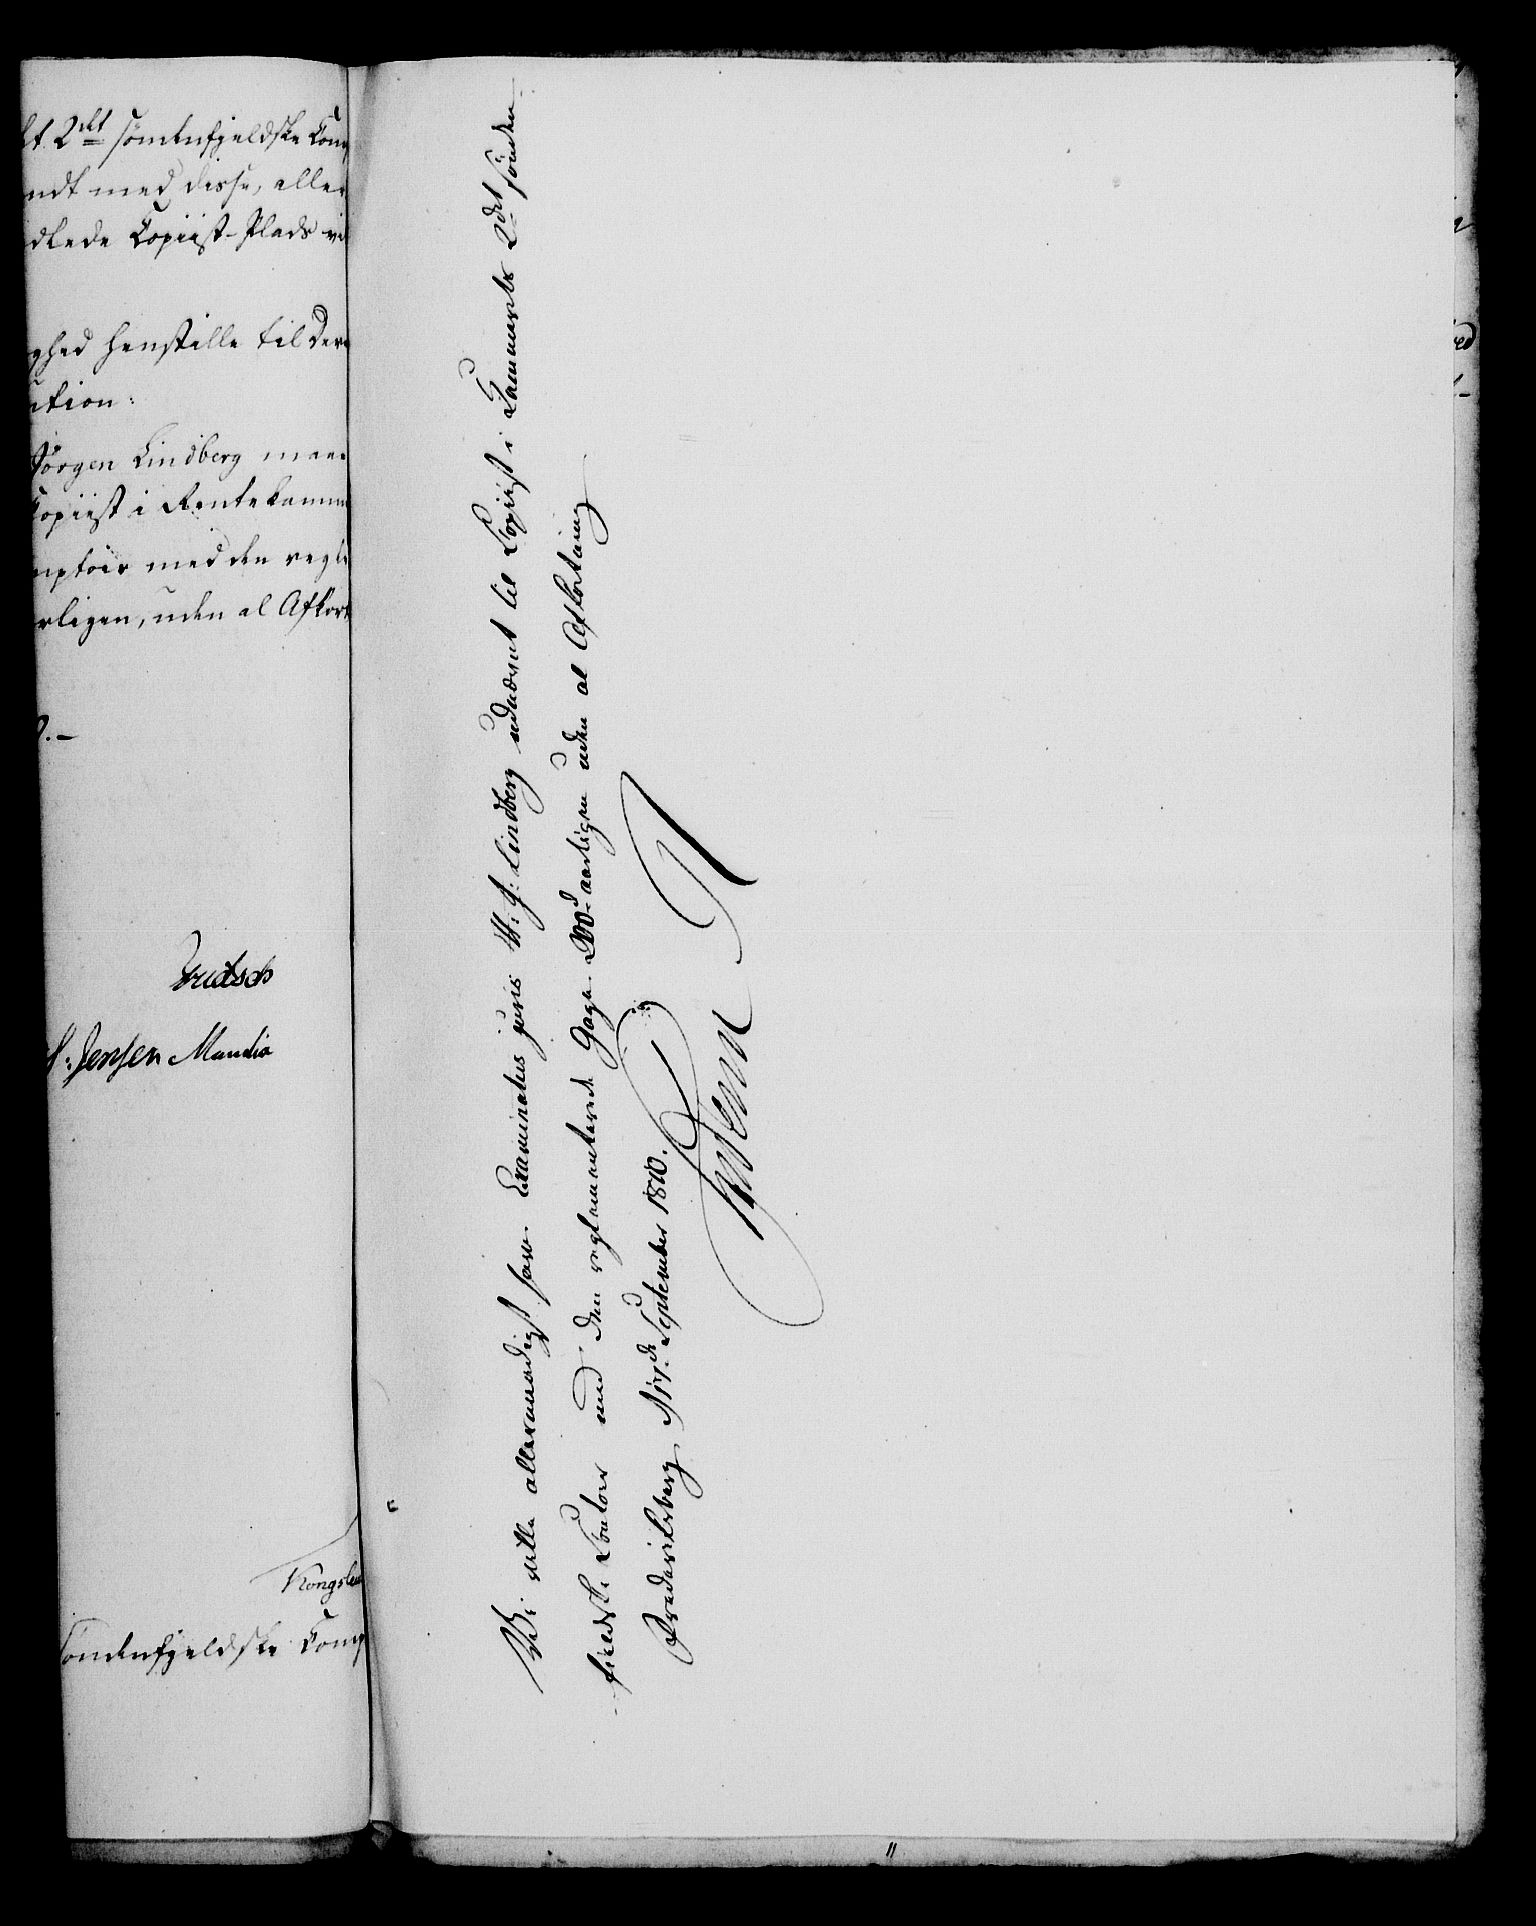 2det sömdenfjeldske Com
ndt med disse, aller
dlede Copiist-Plads vi
ghed henstille til Der
ution:
Jörgen Lindberg maae
Copiist i Rentekamm
mptoir med den regl
rligen, uden al Afkort
Fritsch
Jensen Mandix
Kongsl
söndenfjeldske Com
Vi ville allernaadigst have Examinatus juris H: J: Lindberg udnævnt til Copiist i Kammerets 2det sönden-
-fieldske Contoir med den reglementerede Gage aarligen uden al Afkortning
Frederiksberg September 1810.
Frederik R